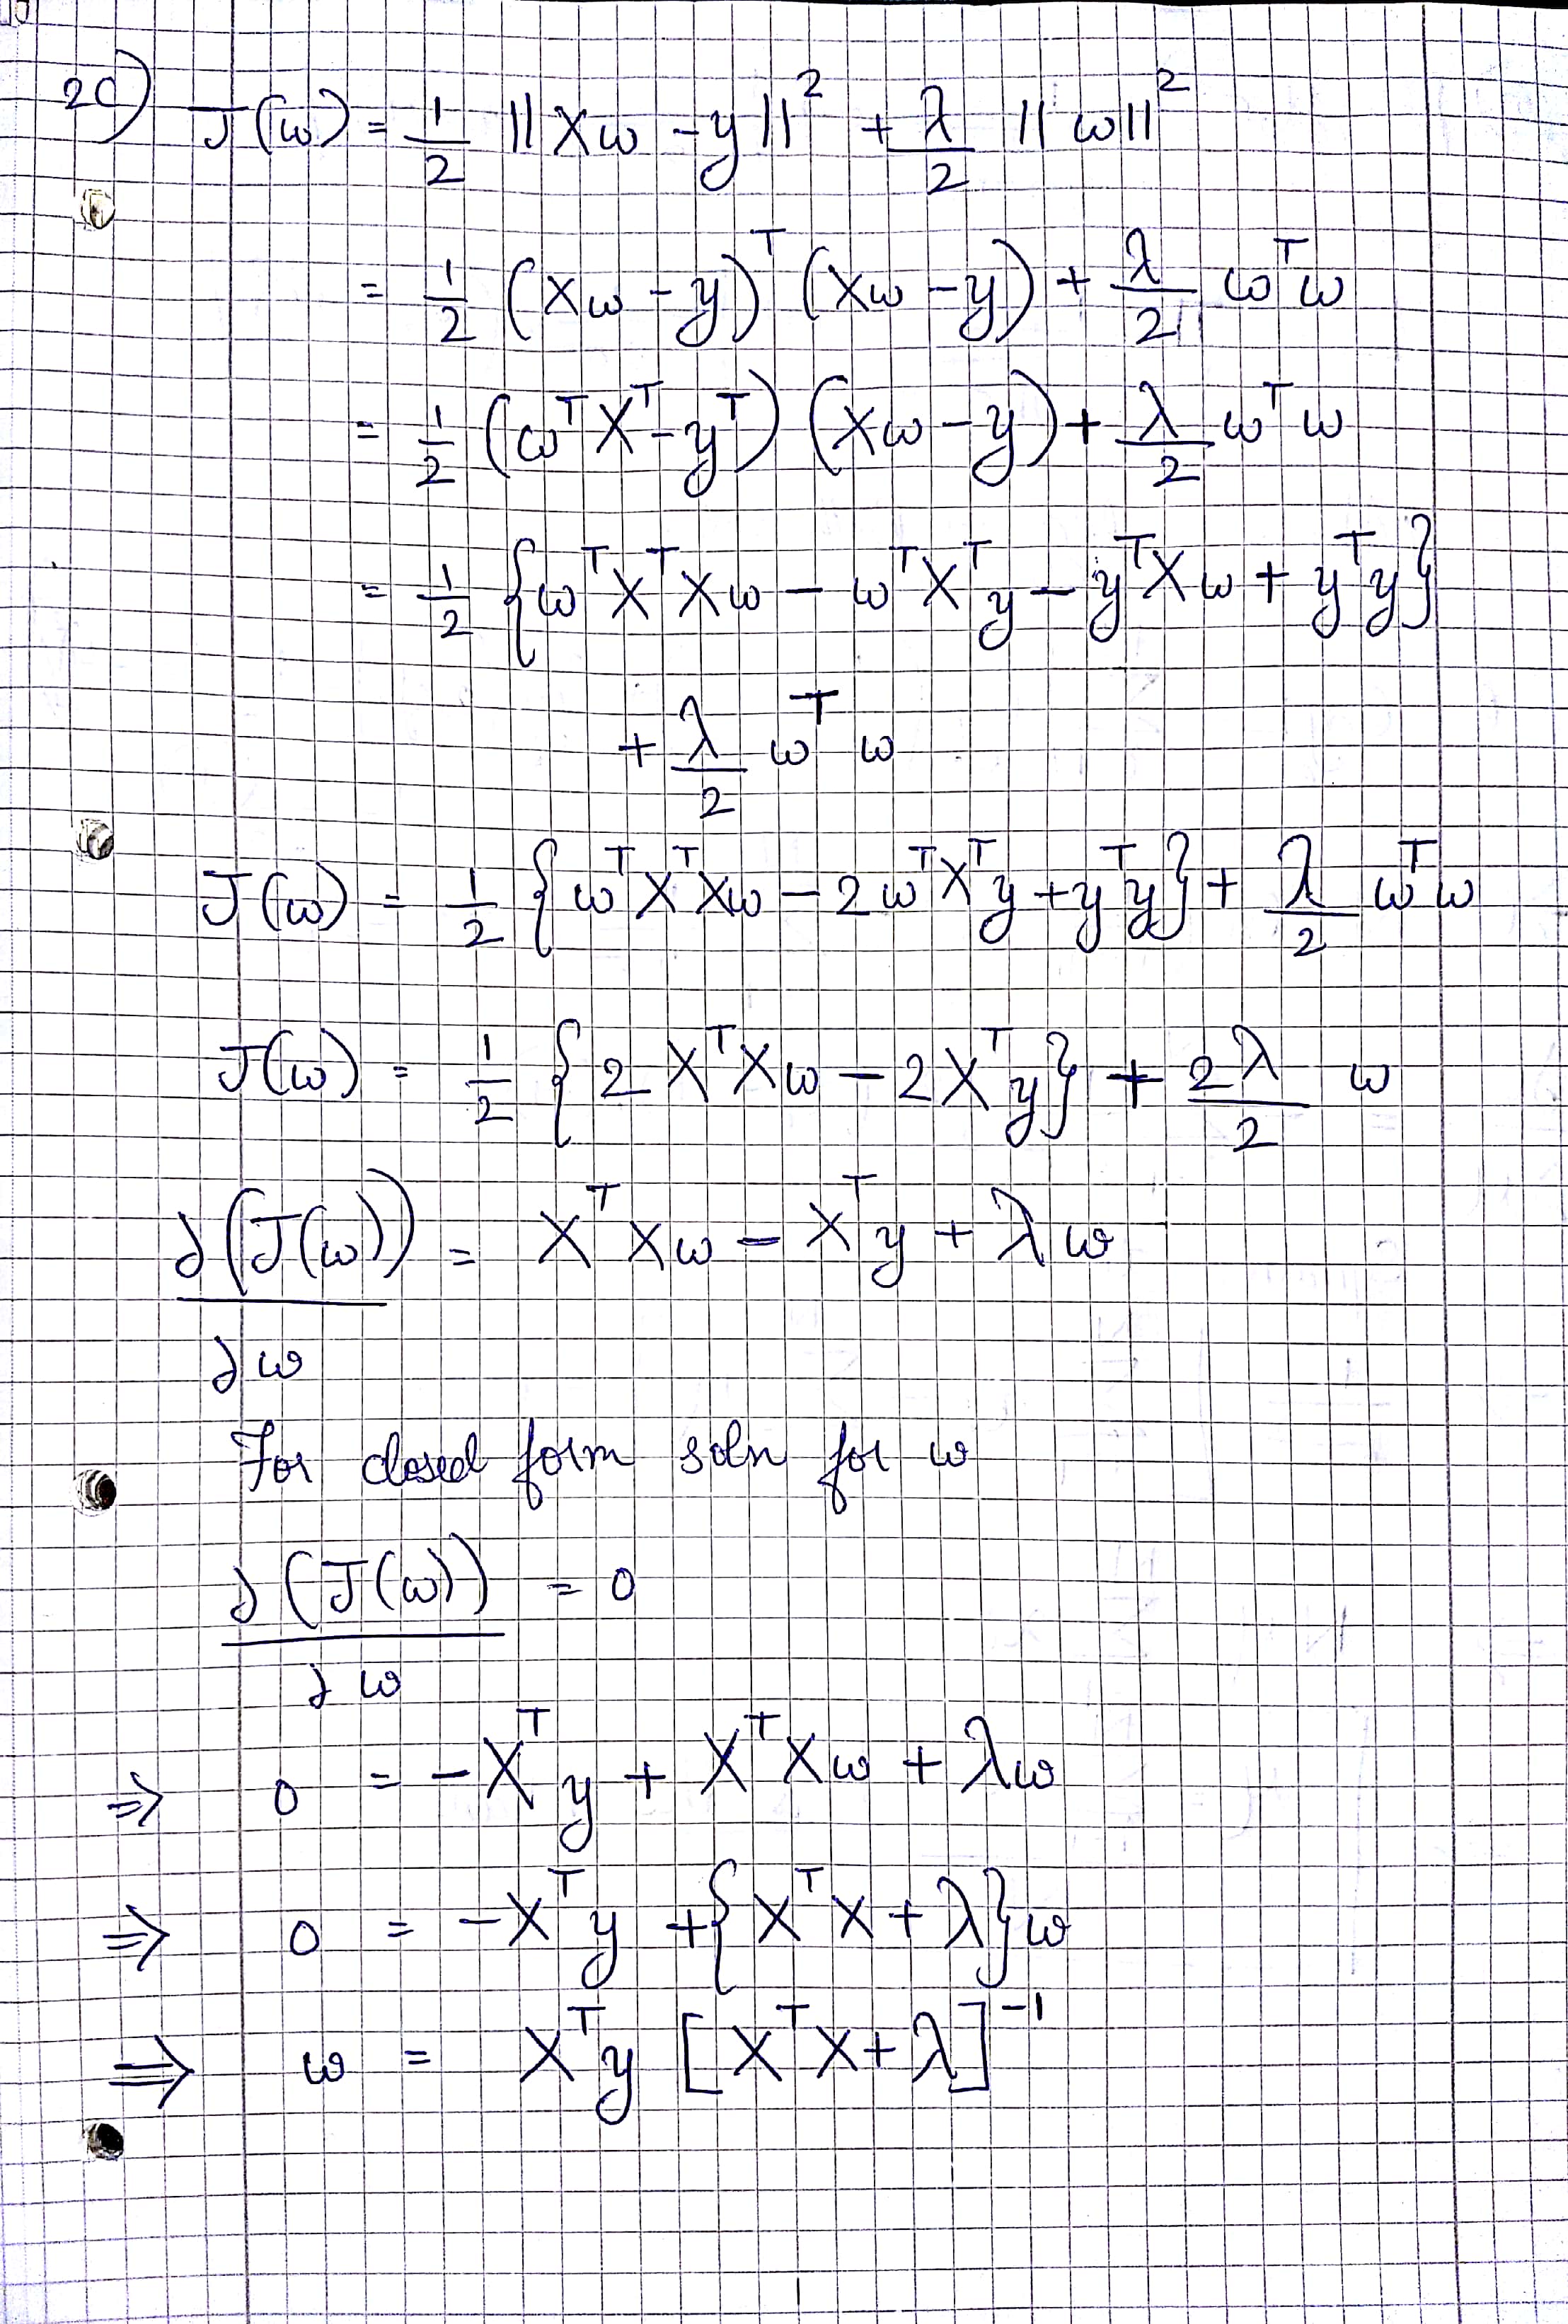 2c) J(ω) = 1/2 ||Xω - y||² + λ/2 ||ω||²
= 1/2 (Xω - y)ᵀ (Xω - y) + λ/2 ωᵀω
= 1/2 (ωᵀXᵀ - yᵀ) (Xω - y) + λ/2 ωᵀω
= 1/2 {ωᵀXᵀXω - ωᵀXᵀy - yᵀXω + yᵀy}
+ λ/2 ωᵀω
J(ω) = 1/2 {ωᵀXᵀXω - 2ωᵀXᵀy + yᵀy} + λ/2 ωᵀω
J(ω) = 1/2 {2XᵀXω - 2Xᵀy} + 2λ/2 ω
∂(J(ω))/∂ω = XᵀXω - Xᵀy + λω
For closed form soln for ω
∂(J(ω))/∂ω = 0
⇒ 0 = -Xᵀy + XᵀXω + λω
⇒ 0 = -Xᵀy + {XᵀX + λ}ω
⇒ ω = Xᵀy [XᵀX + λ]⁻¹